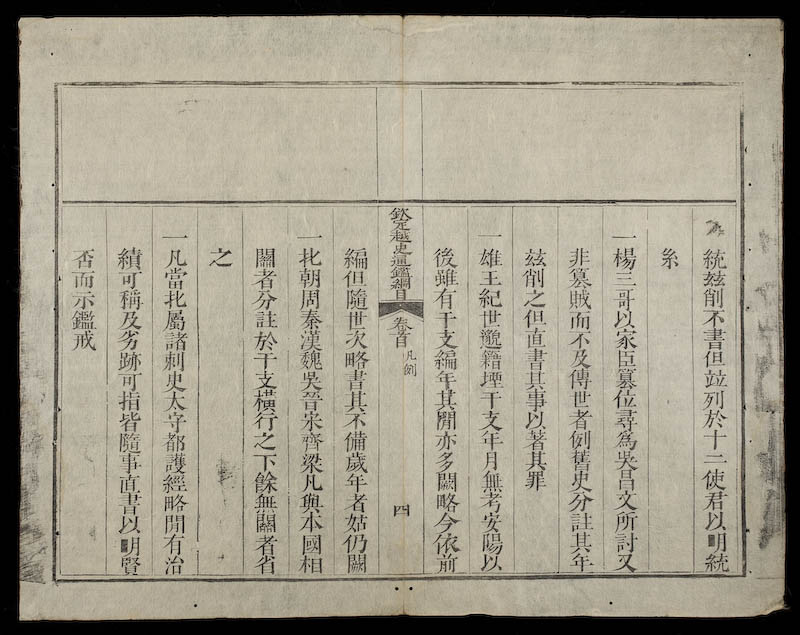 統玆削不書但竝列於十二使君以明統
系
一楊三哥以家臣篡位尋爲吳昌文所討又
非篡賊而不及傳世者例舊史分註其年
玆削之但直書其事以著其罪
一雄王紀世邈籍堙干支年月無考安陽以
後雖有干支編年其閒亦多闕略今依前
欽定越史通鑑綱目 卷首 凡例 四
編但隨世次略書其不備歲年者姑仍闕
一北朝周秦漢魏吳晉宋齊梁凡與本國相
關者分註於干支橫行之下餘無關者省
之
一凡當北屬諸刺史太守都護經略閒有治
績可稱及劣跡可指皆隨事直書以明賢
否而示鑑戒